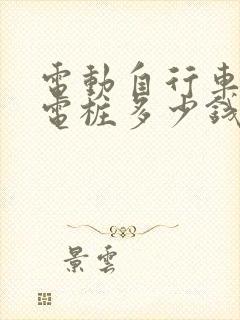 電動自行車
電桩多少錢
景雲